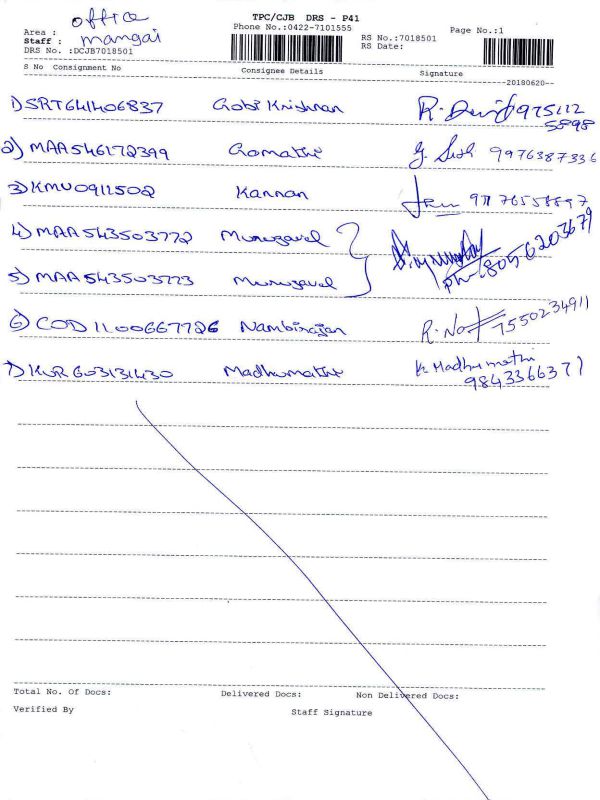 TPC/CJB DRS - P41
Phone No.:0422-7101555
Page No.:1
Area : office
Staff : mangai
DRS No. :DCJB7018501
RS No.:7018501
RS Date:
S No Consignment No Consignee Details Signature
--20180620--
1) SRT641406837 Gobi Krishnan R. 975112
5898
2) MAA546172399 Gomathi 9976387336
3) KMU0911502 Kannan
4) MAA543503772 Murugavel
5) MAA543503773 Murugavel ph-8056203679
6) COD1100667726 Nambirajan 7550234911
7) KUR603131430 Madhumathi K. Madhumathi
9843366371
Total No. Of Docs: Delivered Docs: Non Delivered Docs:
Verified By Staff Signature